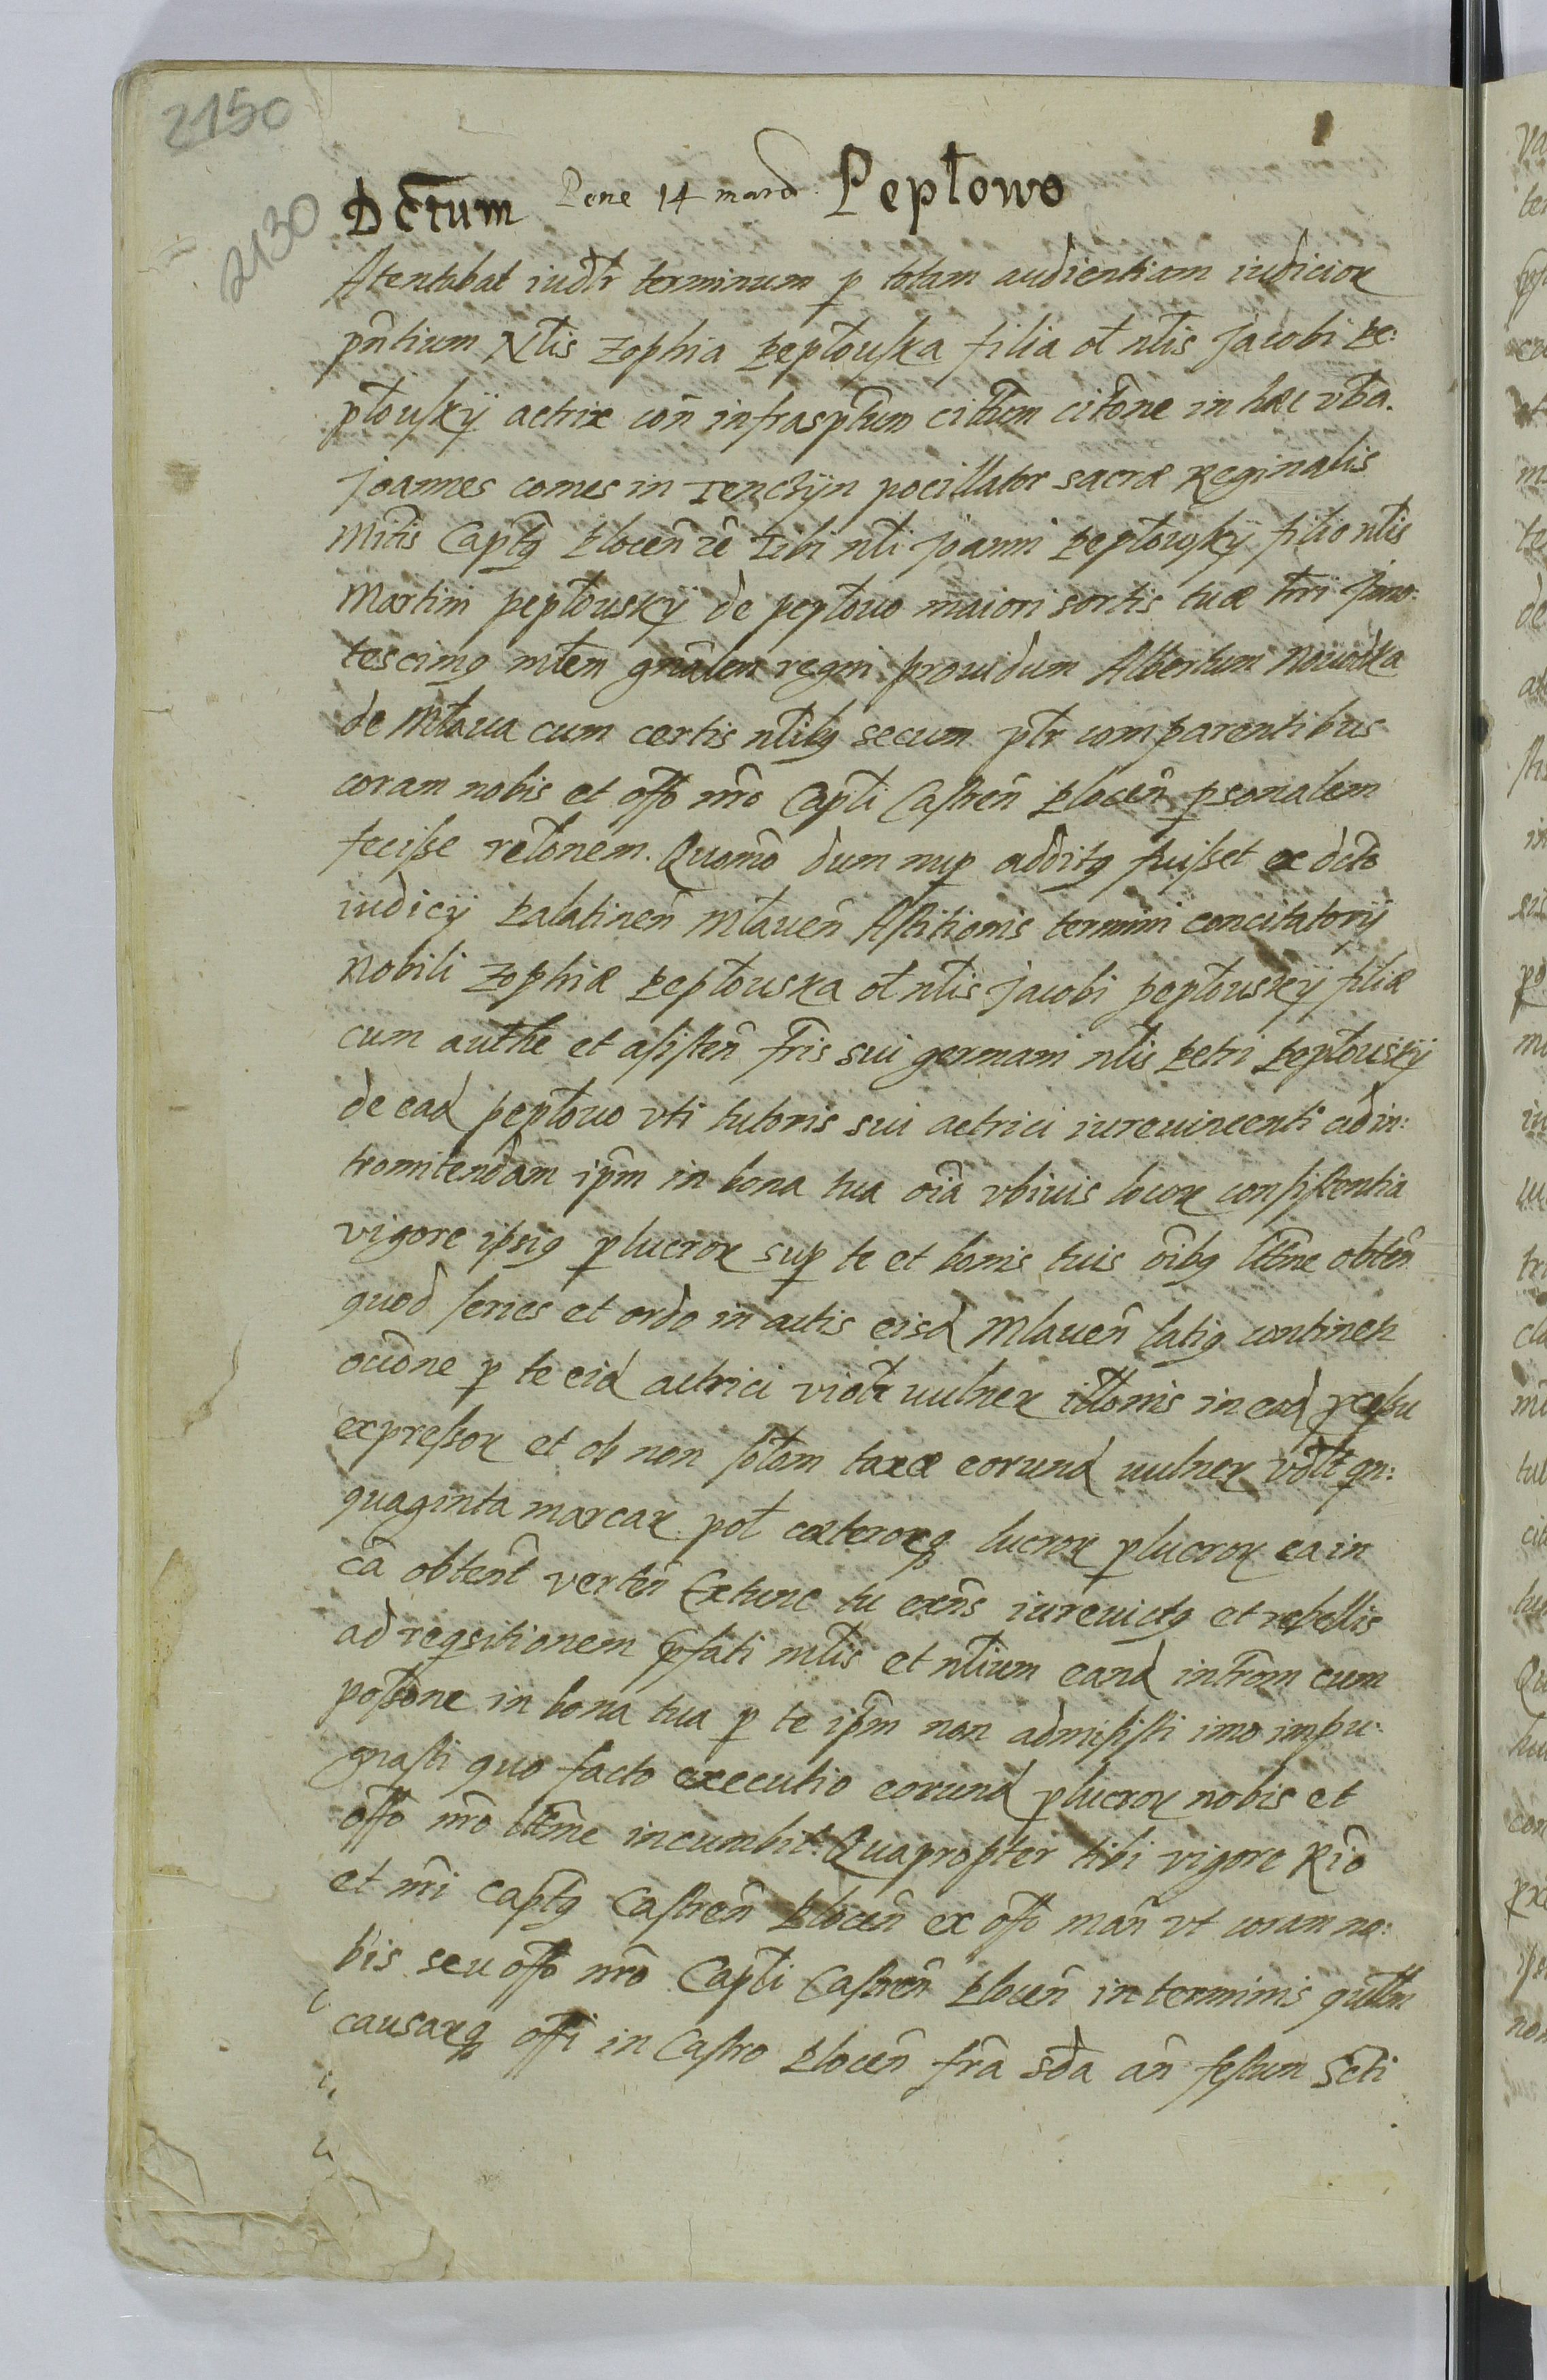 2150
2130
Dctum Pene 14 marcʒ Peptowo
Atentabat iudr terminum p totam audientiam iudicior
pntium Nlis Zophia Peplouska filia ol nlis Jacobi Pe:
plousky actrix con infrasptum cittum citone in hæc vba.
Joannes comes in Tenczyn pocillator sacræ Reginalis
Mttis Captg Plocen re tibi nli Joanni Peplowsky filio nlis
Martini peplousky de peplouo maiori sortis tuæ tri Jnno:
tescimg mlem gnalem regni prouidum Albertum Nowodka
de Mlaua cum certis nlibg secum ptr comparentibus
coram nobis et offo nro Capli Castren Plocen psonalem
fecisse relonem. Quomo dum nup additg fuisset ex dcto
iudicij Palatinen Mlauen Astitionis termini concitatorij
Nobili Zophiæ Peplouska ol nlis Jacobi peplousky filiæ
cum authe et assisten fris sui germani nlis Petri Peplousky
de ead peplouo vti tutoris sui actrici iureuincenti ad in:
tromitendam ipm in bona tua oia vbiuis locor consistentia
vigore ipsig plucror sup te et bonis tuis oibg lttme obten
quod series et ordo in actis eisd Mlauen latig continet
ocione p te eid actrici violtr uulner illonis in ead
expressor et ob non solom taxæ eorund uulner vdlt qn:
quaginta marcar pol cæterorq lucror plucror ea in
ca obtent verten Extunc tu exns iureuictg et rebellis
ad reqsitionem pfati mlis et nlium eand introm cum
possone in bona tua p te ipm non admisisti imo impu:
gnasti quo facto executio eorund plucror nobis et
offo nro lttme incumbit. Quapropter tibi vigore Rio
et nri captg Castren Plocen ex offo man vt coram no:
bis seu offo nro Capli Castren Plocen in terminis
causarq offi in Castro Plocen fra sda an festum Scti